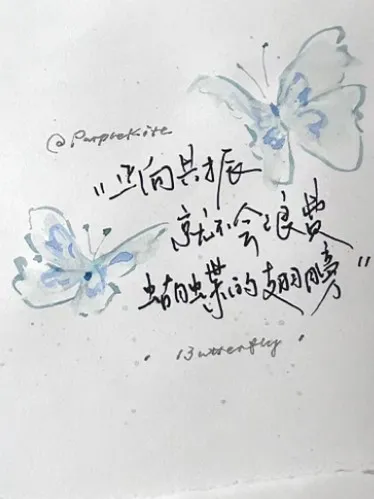 @PurpleKite
"向共振
就不会浪费
蝴蝶的翅膀"
· Butterfly ·